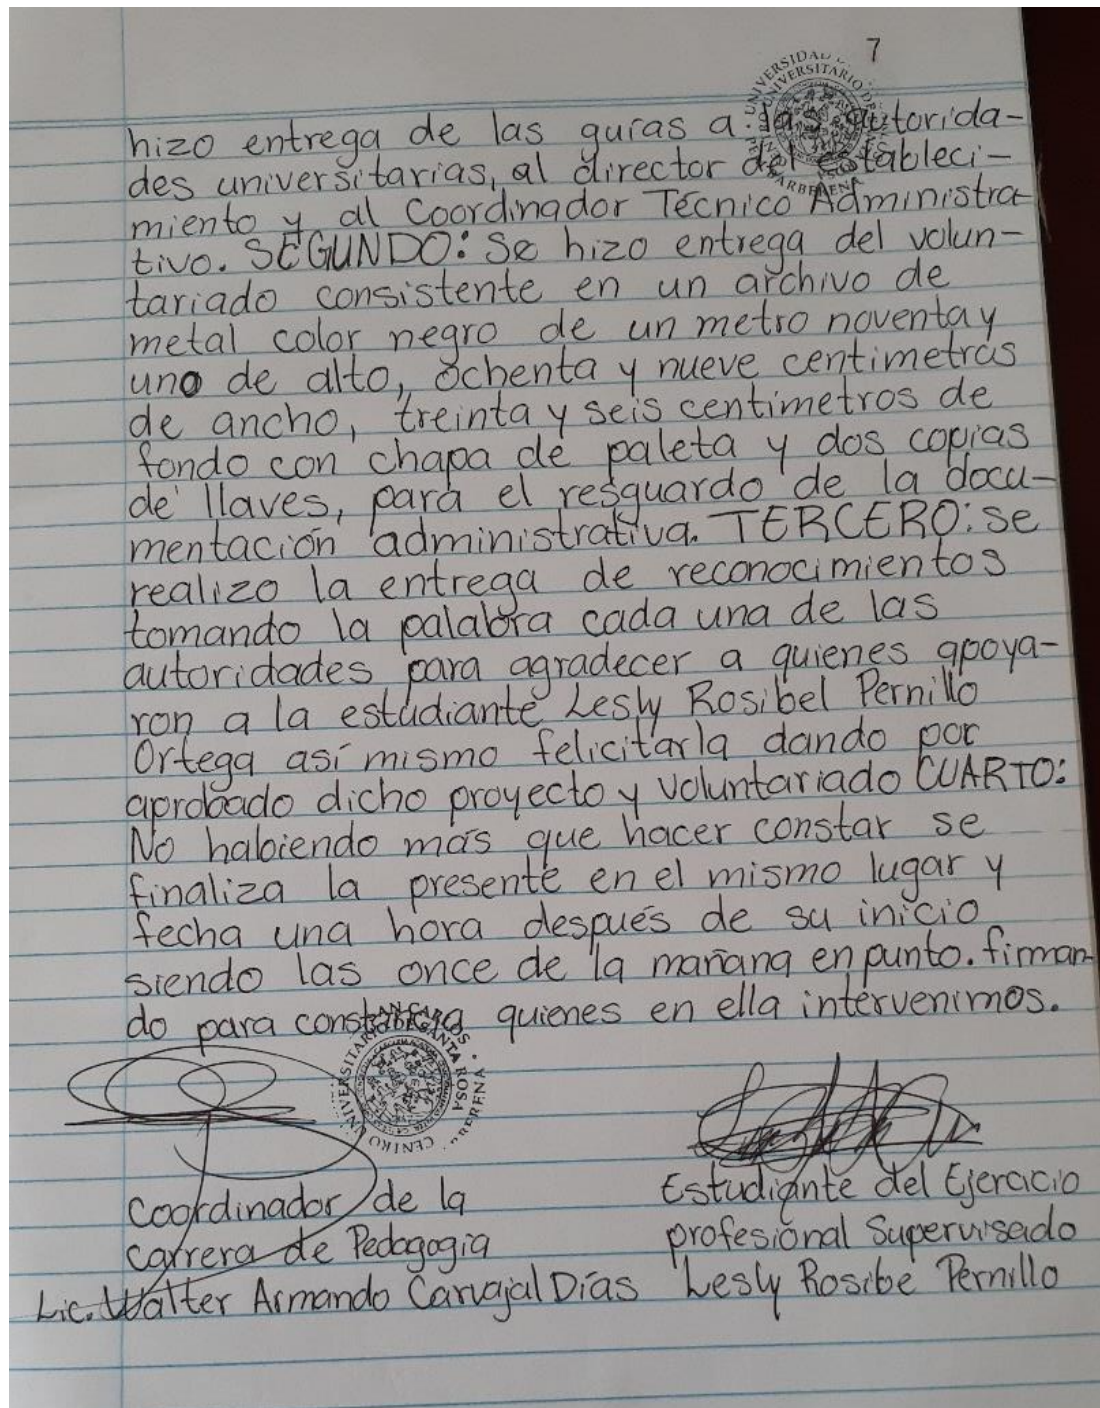 7
hizo entrega de las guías a las autorida-
des universitarias, al director del estableci-
miento y al Coordinador Técnico Administra-
tivo. SEGUNDO: Se hizo entrega del volun-
tariado consistente en un archivo de
metal color negro de un metro noventa y
uno de alto, ochenta y nueve centimetros
de ancho, treinta y seis centimetros de
fondo con chapa de paleta y dos copias
de llaves, para el resguardo de la docu-
mentación administrativa. TERCERO: se
realizo la entrega de reconocimientos
tomando la palabra cada una de las
autoridades para agradecer a quienes apoya-
ron a la estudiante Lesly Rosibel Pernillo
Ortega así mismo felicitarla dando por
aprobado dicho proyecto y voluntariado CUARTO:
No habiendo más que hacer constar se
finaliza la presente en el mismo lugar y
fecha una hora después de su inicio
siendo las once de la mañana en punto. firman-
do para constancia quienes en ella intervenimos.
CENTRO UNIVERSITARIO DE SANTA ROSA
Coordinador de la
carrera de Pedagogia
Lic. Walter Armando Carvajal Días
Estudiante del Ejercicio
profesional Supervisado
Lesly Rosibe Pernillo